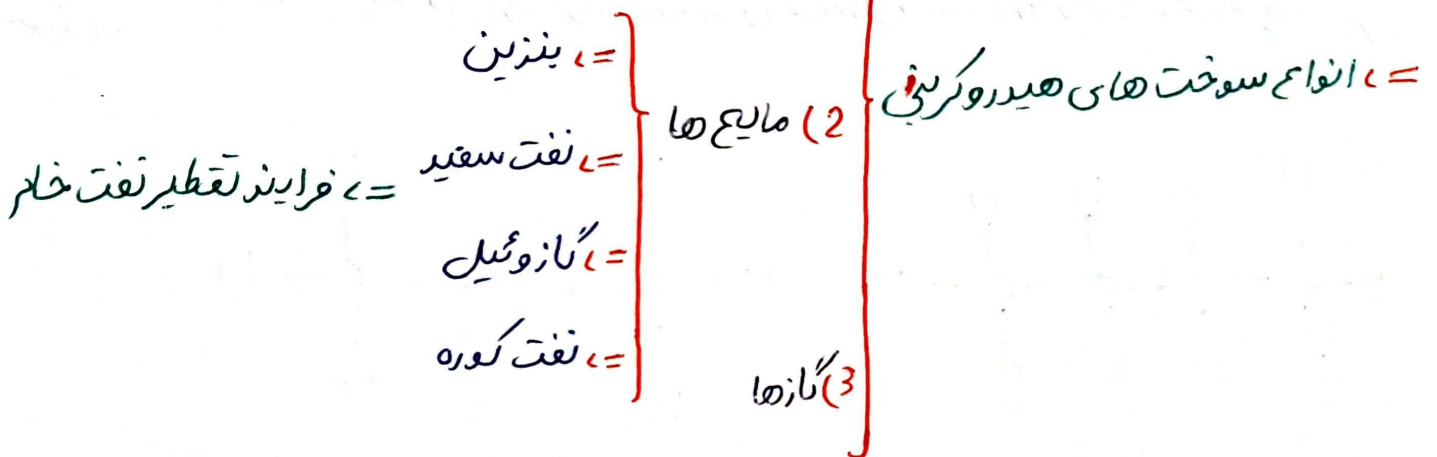 => انواع سوخت های هیدروکربنی
2) مایع ها
=> بنزین
=> نفت سفید
=> گازوئیل
=> نفت کوره
=> فرایند تقطیر نفت خام
3) گازها